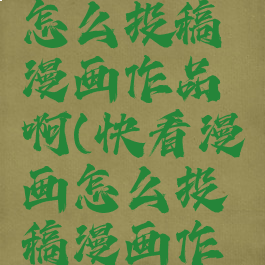 怎么投稿
漫画作品
啊(快看漫
画怎么投
稿漫画作